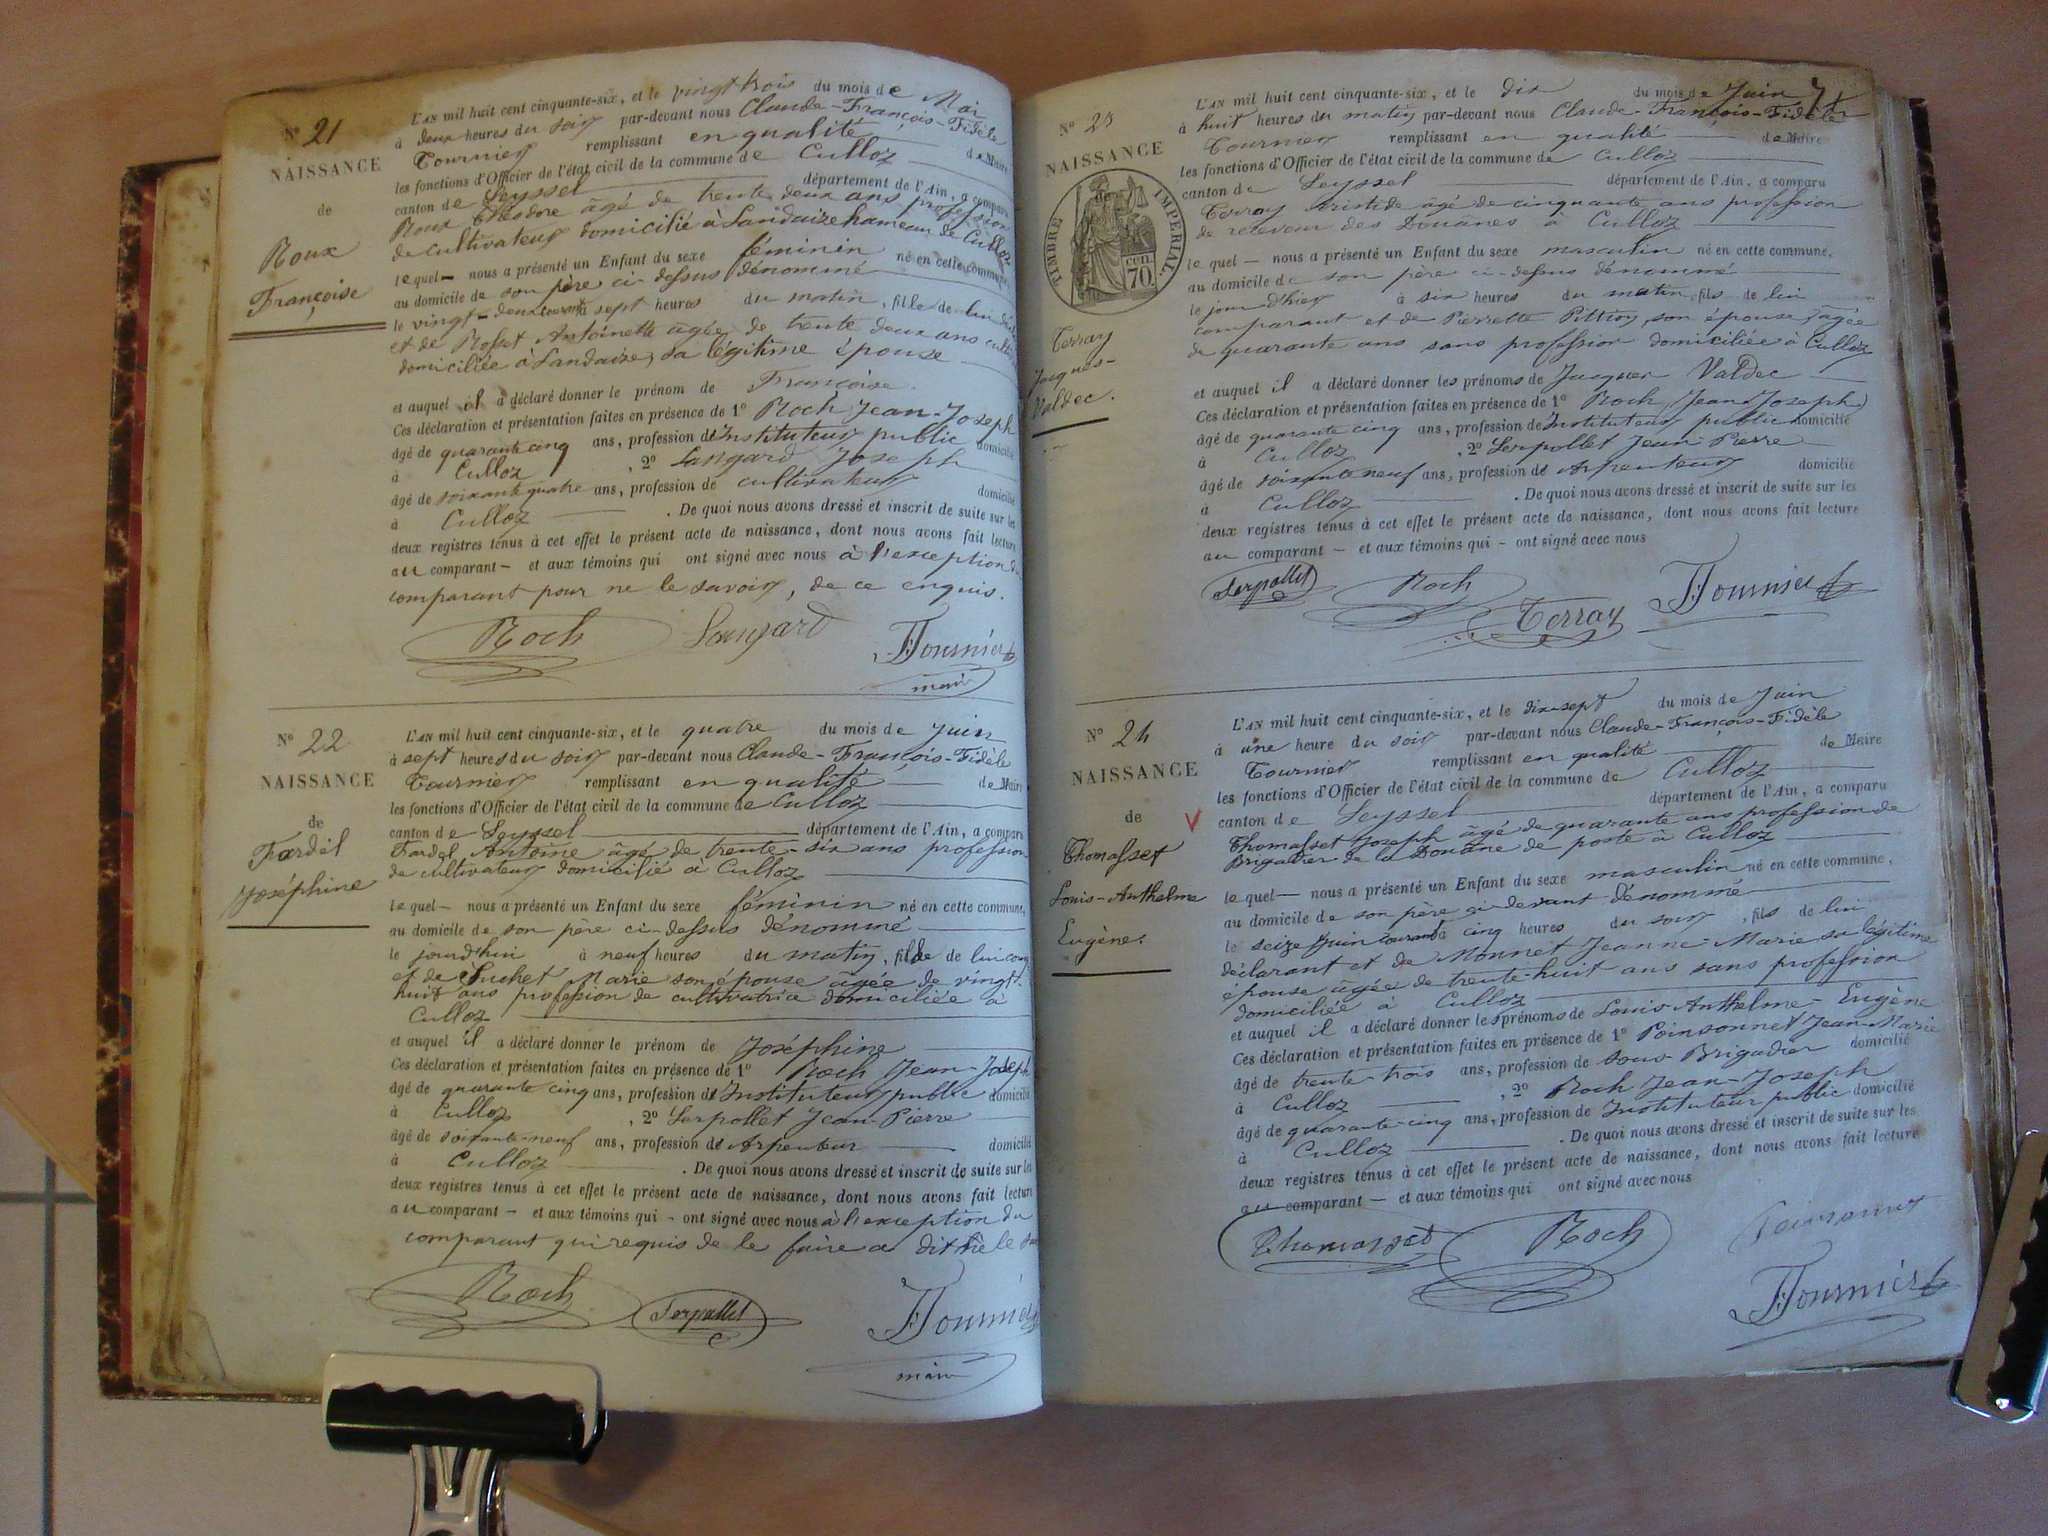 N° 21
NAISSANCE
de
Roux
Françoise
L'AN mil huit cent cinquante-six, et le vingt trois du mois de Mai
à deux heures du soir par-devant nous Claude-François-Fidèle
Tournier remplissant en qualité de Maire
les fonctions d'Officier de l'état civil de la commune de Culloz
canton de Seyssel département de l'Ain, a comparu
Roux Théodore âgé de trente deux ans profession
de cultivateur domicilié à Landaize hameau de Culloz
lequel nous a présenté un Enfant du sexe féminin né en cette commune,
au domicile de son père ci-dessus dénommé
le vingt-deux courant à sept heures du matin, fille de lui
et de Rosset Antoinette âgée de trente deux ans
domiciliée à Landaize, sa légitime épouse
et auquel il a déclaré donner le prénom de Françoise.
Ces déclaration et présentation faites en présence de 1° Roch Jean-Joseph
âgé de quarante cinq ans, profession d'Instituteur public domicilié
à Culloz, 2° Langard Joseph
âgé de soixante quatre ans, profession de cultivateur domicilié
à Culloz. De quoi nous avons dressé et inscrit de suite sur les
deux registres tenus à cet effet le présent acte de naissance, dont nous avons fait lecture
au comparant – et aux témoins qui ont signé avec nous à l'exception du
comparant pour ne le savoir, de ce enquis.
Roch Langard Tournier
maire
N° 22
NAISSANCE
de
Fardel
Joséphine
L'AN mil huit cent cinquante-six, et le quatre du mois de Juin
à sept heures du soir par-devant nous Claude-François-Fidèle
Tournier remplissant en qualité de Maire
les fonctions d'Officier de l'état civil de la commune de Culloz
canton de Seyssel département de l'Ain, a comparu
Fardel Antoine âgé de trente-six ans profession
de cultivateur domicilié à Culloz
lequel – nous a présenté un Enfant du sexe féminin né en cette commune,
au domicile de son père ci-dessus dénommé
le jourd'hui à neuf heures du matin, fille de lui
et de Suchet Marie son épouse âgée de vingt-
huit ans profession de cultivatrice domiciliée à
Culloz
et auquel il a déclaré donner le prénom de Joséphine
Ces déclaration et présentation faites en présence de 1° Roch Jean-Joseph
âgé de quarante cinq ans, profession d'Instituteur public domicilié
à Culloz, 2° Serpollet Jean-Pierre
âgé de soixante-neuf ans, profession d'Arpenteur domicilié
à Culloz. De quoi nous avons dressé et inscrit de suite sur les
deux registres tenus à cet effet le présent acte de naissance, dont nous avons fait lecture
au comparant – et aux témoins qui – ont signé avec nous à l'exception du
comparant qui requis de le faire a dit ne le
Roch Serpollet Tournier
maire
71
N° 23
NAISSANCE
TIMBRE IMPERIAL.
CEN. 70.
Terray
Jacques-
Valdec.
L'AN mil huit cent cinquante-six, et le dix du mois de Juin
à huit heures du matin par-devant nous Claude-François-Fidèle
Tournier remplissant en qualité de Maire
les fonctions d'Officier de l'état civil de la commune de Culloz
canton de Seyssel département de l'Ain, a comparu
Terray Aristide âgé de cinquante ans profession
de receveur des Douanes à Culloz
lequel – nous a présenté un Enfant du sexe masculin né en cette commune,
au domicile de son père ci-dessus dénommé
le jour d'hier à six heures du matin, fils de lui
comparant et de Pierrette Pittion, son épouse, âgée
de quarante ans sans profession domiciliée à Culloz
et auquel il a déclaré donner les prénoms de Jacques Valdec
Ces déclaration et présentation faites en présence de 1° Roch (Jean-Joseph)
âgé de quarante cinq ans, profession d'Instituteur public domicilié
à Culloz, 2° Serpollet Jean-Pierre
âgé de soixante neuf ans, profession d'Arpenteur domicilié
à Culloz. De quoi nous avons dressé et inscrit de suite sur les
deux registres tenus à cet effet le présent acte de naissance, dont nous avons fait lecture
au comparant – et aux témoins qui – ont signé avec nous
Serpollet Roch Terray Tournier
N° 24
NAISSANCE
de V
Thomasset
Louis-Anthelme
Eugène.
L'AN mil huit cent cinquante-six, et le dix-sept du mois de Juin
à une heure du soir par-devant nous Claude-François-Fidèle
Tournier remplissant en qualité de Maire
les fonctions d'Officier de l'état civil de la commune de Culloz
canton de Seyssel département de l'Ain, a comparu
Thomasset Joseph âgé de quarante ans profession de
Brigadier de la Douane de poste à Culloz
lequel – nous a présenté un Enfant du sexe masculin né en cette commune,
au domicile de son père ci-devant dénommé
le seize Juin courant à cinq heures du soir, fils de lui
déclarant et de Monnet Jeanne-Marie sa légitime
épouse âgée de trente-huit ans sans profession
domiciliée à Culloz
et auquel il a déclaré donner les prénoms de Louis Anthelme-Eugène
Ces déclaration et présentation faites en présence de 1° Poinsonnet Jean-Marie
âgé de trente-trois ans, profession de sous-Brigadier domicilié
à Culloz, 2° Roch Jean-Joseph
âgé de quarante-cinq ans, profession de Instituteur public domicilié
à Culloz. De quoi nous avons dressé et inscrit de suite sur les
deux registres tenus à cet effet le présent acte de naissance, dont nous avons fait lecture
au comparant – et aux témoins qui ont signé avec nous
Thomasset Roch Poinsonnet
Tournier